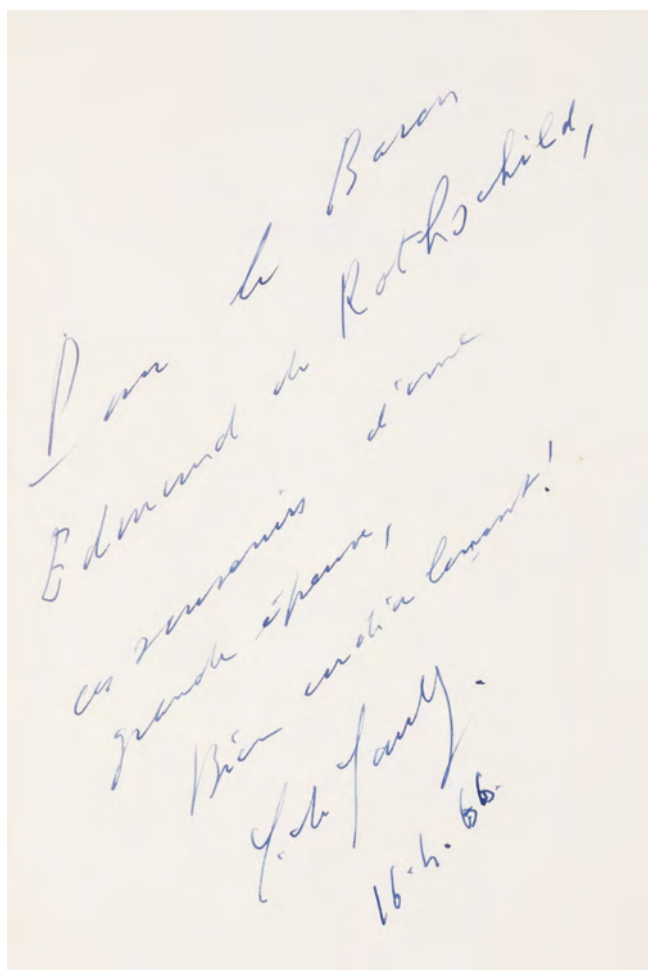 Pour le Baron
Edmond de Rothschild,
ces souvenirs d'une
grande épreuve,
Bien cordialement!
de
16.4.66.